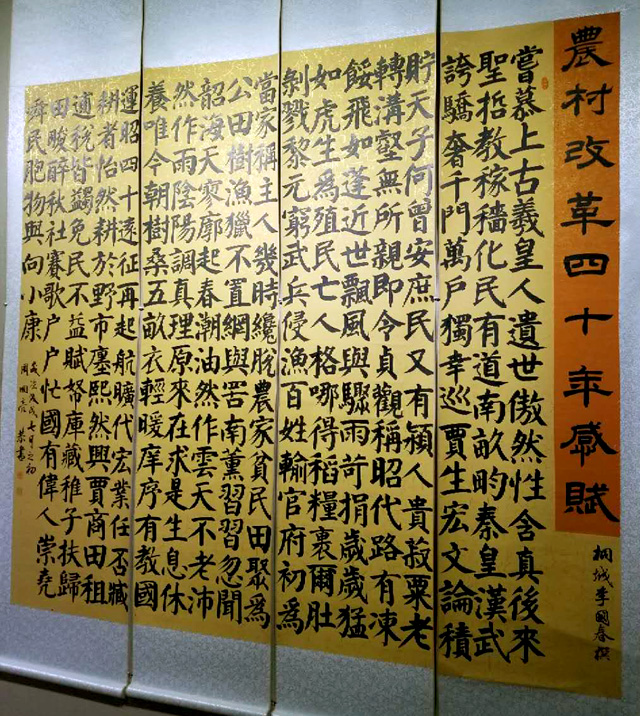 農村改革四十年感賦
桐城李國春撰
嘗慕上古羲皇人遺世傲然性含真後來
聖哲教稼穡化民有道南畝畇秦皇漢武
誇驕奢千門萬戶獨幸巡賈生宏文論積
貯天子何曾安庶民又有潁人貴菽粟老
轉溝壑無所親即令貞觀稱昭代路有凍
餒飛如蓬近世飄風與驟雨苛捐歲歲猛
如虎生為殖民亡人格哪得稻糧裹爾肚
剝戮黎元窮武兵侵漁百姓輸官府初為
當家稱主人幾時纔脫農家貧民田聚為
公田樹漁獵不置網與罟南薰習習忽聞
韶海天寥廓起春潮油然作雲天不老沛
然作雨陰陽調真理原來在求是生息休
養唯今朝樹桑五畝衣輕暖庠序有教國
運昭四十遠征再起航曠代宏業任否臧
耕者怡然耕於野市廛熙然興賈商田租
逋稅皆蠲免民不益賦帑庫藏稚子扶歸
田畯醉秋社賽歌戶戶忙國有偉人崇堯
舜民胞物與向小康
歲次戊戌七月之初
恭書